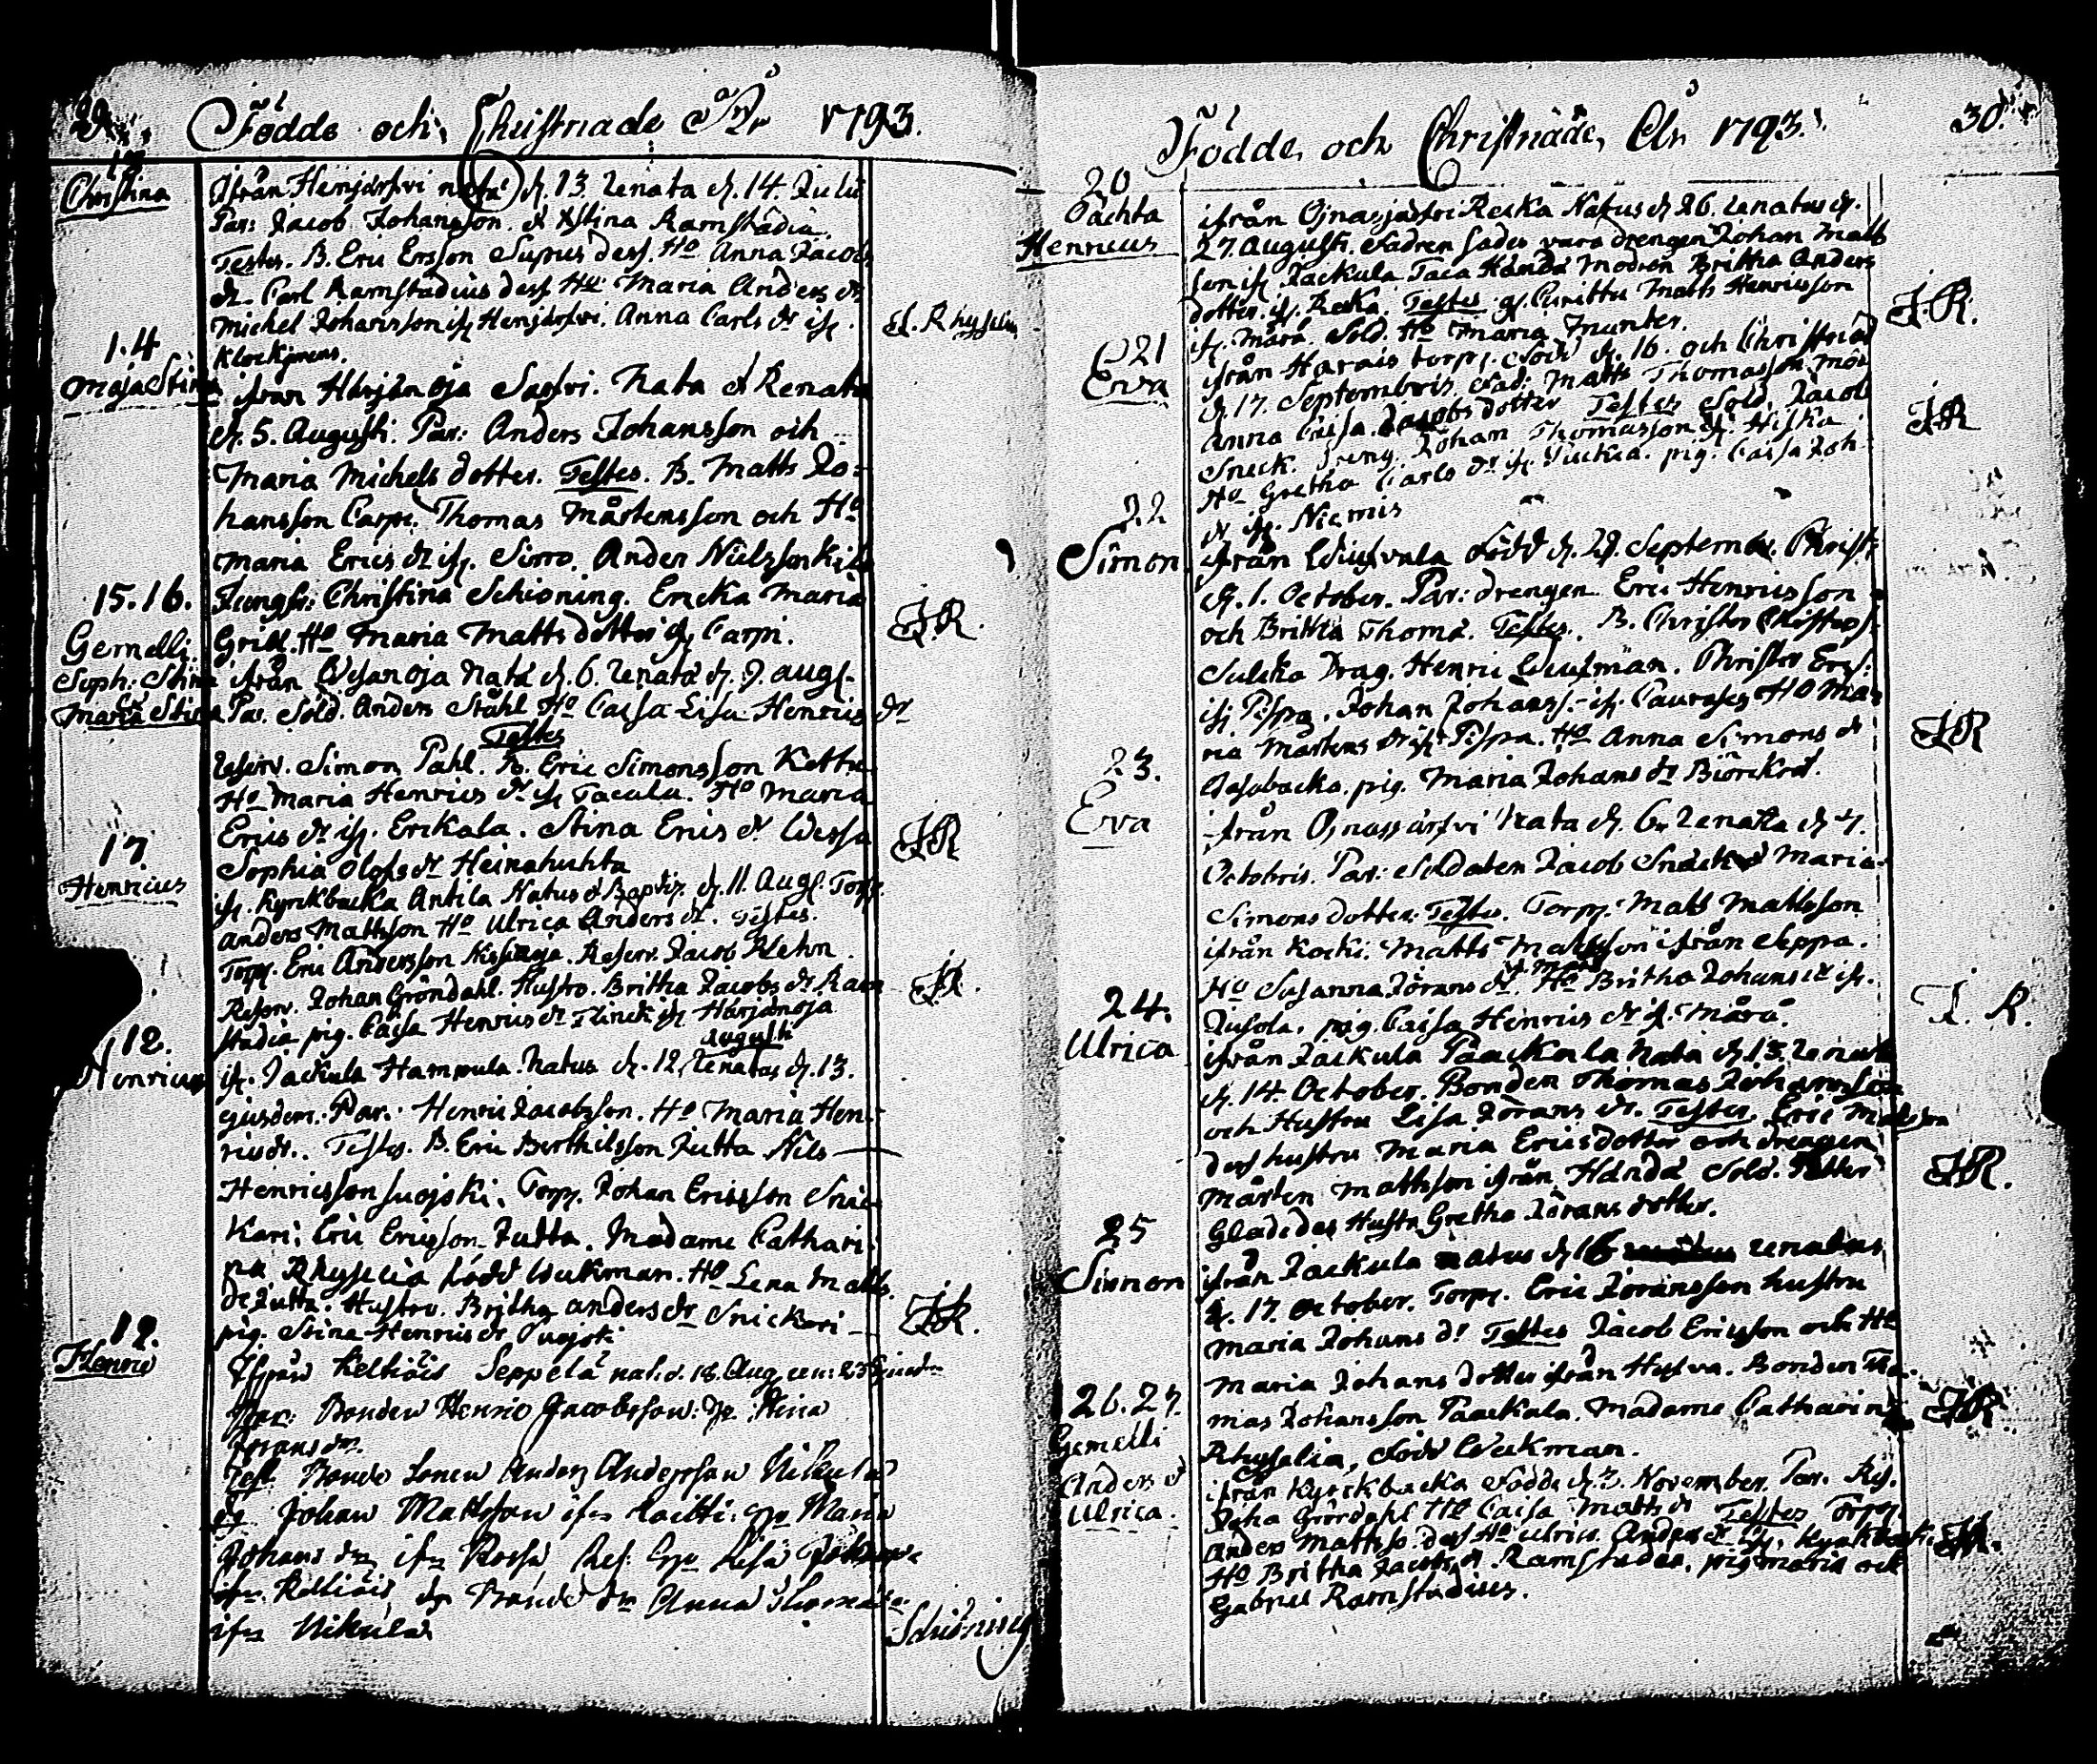 Födde och Christnade År 1793.
13.
Christina
Ifrån Henjärfvi nata d. 13. renata d. 14. Julii
Par: Jacob Johansson. et Stina Ramstadia.
Testes. B. Eric Ersson Supius dess Ho Anna Jacobs
dr. Carl Ramstadius dess Ho Maria Anders dr
Michel Johansson ifr Henjärfvi. Anna Carls dr ifr.
Klockjmens.
J. Rhyselius
14
Maja Stina
ifrån Harjänoja Saffvi. Nata et Renata
d. 5. Augusti. Par: Anders Johansson och
Maria Michels dotter. Testes. B. Matts Jo-
hansson Carpi. Thomas Mårtensson och Ho
Maria Erics dr ifr. Simo. Anders Nielsson
Jungfr: Christina Schioning. Ericka Maria
Grill. Ho Maria Matts dotter ifr Carpi.
J.R.
15.16.
Gemelli
Soph: Stina
et
Maria Stina
ifrån Wesanoja Nata d. 6. renata d. 9. aug.
Par. Sold. Anders Ståhl Ho Caisa Lisa Henrics dr
Testes
Reserv. Simon Pahl. B. Eric Simonsson Kettu
Ho Maria Henrics dr ifr Taculu. Ho Maria
Erics dr ifr. Erckala. Stina Erics dr Wessa
Sophia Olofs dr Heinahuhta
JR
17
Henricus
ifr. Kyrckbacka Antila Natus & Baptiz. d. 11. Aug. Torp.
Anders Mattsson Ho Ulrica Anders dr. Testes.
Torp. Eric Andersson Nissinoja. Reserv. Jacob Klehn.
Reserv. Johan Gröndahl. Hustro. Britha Jacobs dr Ram
stadia pig. Caisa Henrics dr Flinck ifr Harjänoja
JR.
18.
Henricus
ifr. Jackula Hampula. Natus d. 12. renatus d. 13.
Augusti
ejusdem. Par. Henric Jacobsson. Ho Maria Hen-
rics dr. Testes. B. Eric Berthilsson Jutta Nils
Henricsson Suojoki. Torp. Johan Ericsson Snic
kari. Eric Ericsson Jutta. Madame Cathari
na Rhyselia född Wekman. Ho Lena Matts
dr Jutta. Hustro. Britha Anders dr Snickari
pig. Stina Henrics dr Suojoki
JR.
19.
Henric
Ifrån Keltiäis Seppelä nat. d. 18. Aug. ren: 23 ejusdem
Par: Bonden Henric Jacobsson: H. Stina
Jörans dr.
Test. Bonde Sonen Anders Andersson Nikula
dr. Johan Mattsson ifr Raitti: H. Maria
Johans dr ifr Rossa
ifr Keltiäis, Bonde dr Anna Thomas dr
ifr Nikula
Schiöning
Födde och Christnade År 1793.
30.
20
Oächta
Henricus
ifrån Ojnasjärfvi Recka Natus d 26. renatus d.
27. Augusti. Fadren sades vara drengen Johan Matts
son ifr Jackula Taca Handa Modren Britha Anders
dotter ifr. Recka. Testes. Matts Henricsson
ifr. Mårå. Sold. Ho Maria Munter.
J.R.
21
Eva
ifrån Harais torp. född d. 16. och Christnad
d. 17. Septembris. Fad. Matts Thomasson Mod
Anna Caisa Jacobsdotter Testes Sold. Jacob
Sneck. Johan Thomasson ifr. Hiska
Ho Gretha Carls dr ifr. pig. Caisa Joh
dr ifr. Niemis
JR
22
Simon
ifrån född d. 29. September. Christ.
d. 1. October. Par: drengen Eric Henricsson
och Britha Thoma. Testes. B. Christer Christers.
Sulcka Drag. Henric Christer Ers.
ifr Pispa. Johan Johanss. ifr. Ho Ma-
ria Mårtens dr ifr Pispa. Ho Anna Simons dr
pig. Maria Johans dr Biörckrot.
JR
23.
Eva
ifrån Ojnasjärfvi Nata d. 6. renata d 7.
Octobris. Par: Soldaten Jacob Snäck et Maria
Simonsdotter. Testes. Torp. Matts Mattsson
ifrån Kocki. Matts Mattsson ifrån Seppa.
Ho Susanna Jörans dr. Ho Britha Johans dr ifr.
Jusola. pig. Caisa Henrics dr ifr. Mårå.
J. R.
24.
Ulrica
ifrån Jackula Paackala Nata d. 13. renata
d. 14. October. Bonden Thomas Johansson
och Hustru Lisa Jörans dr. Testes. Eric Mattsson
dess hustru Maria Ericsdotter och drengen
Mårten Mattsson ifrån Handa Sold. Petter
Glad des Hustr Gretha Jörans dotter.
JR.
25
Simon
ifrån Jackula natus d 16 renatus
d. 17. October. Torp. Eric Joransson hustru
Maria Johans dr Testes Jacob Ericsson och Ho
Maria Johans dotter ifrån Husva. Bonden Tho-
mas Johansson Paackala. Madame Catharina
Rhyselia, född Wekman.
JR
26.27.
Gemelli
Anders et
Ulrica.
ifrån Kyrckbacka födde d. 3. November. Par. Res.
Joha Gröndahl Ho Caisa Matts dr Testes Torp.
Anders Mattss. dess Ho Ulrica Anders dr ifr. Kyrkbacka
Ho Britha Jacobs dr Ramstadia, pig Maria och
Gabriel Ramstadius.
JR.